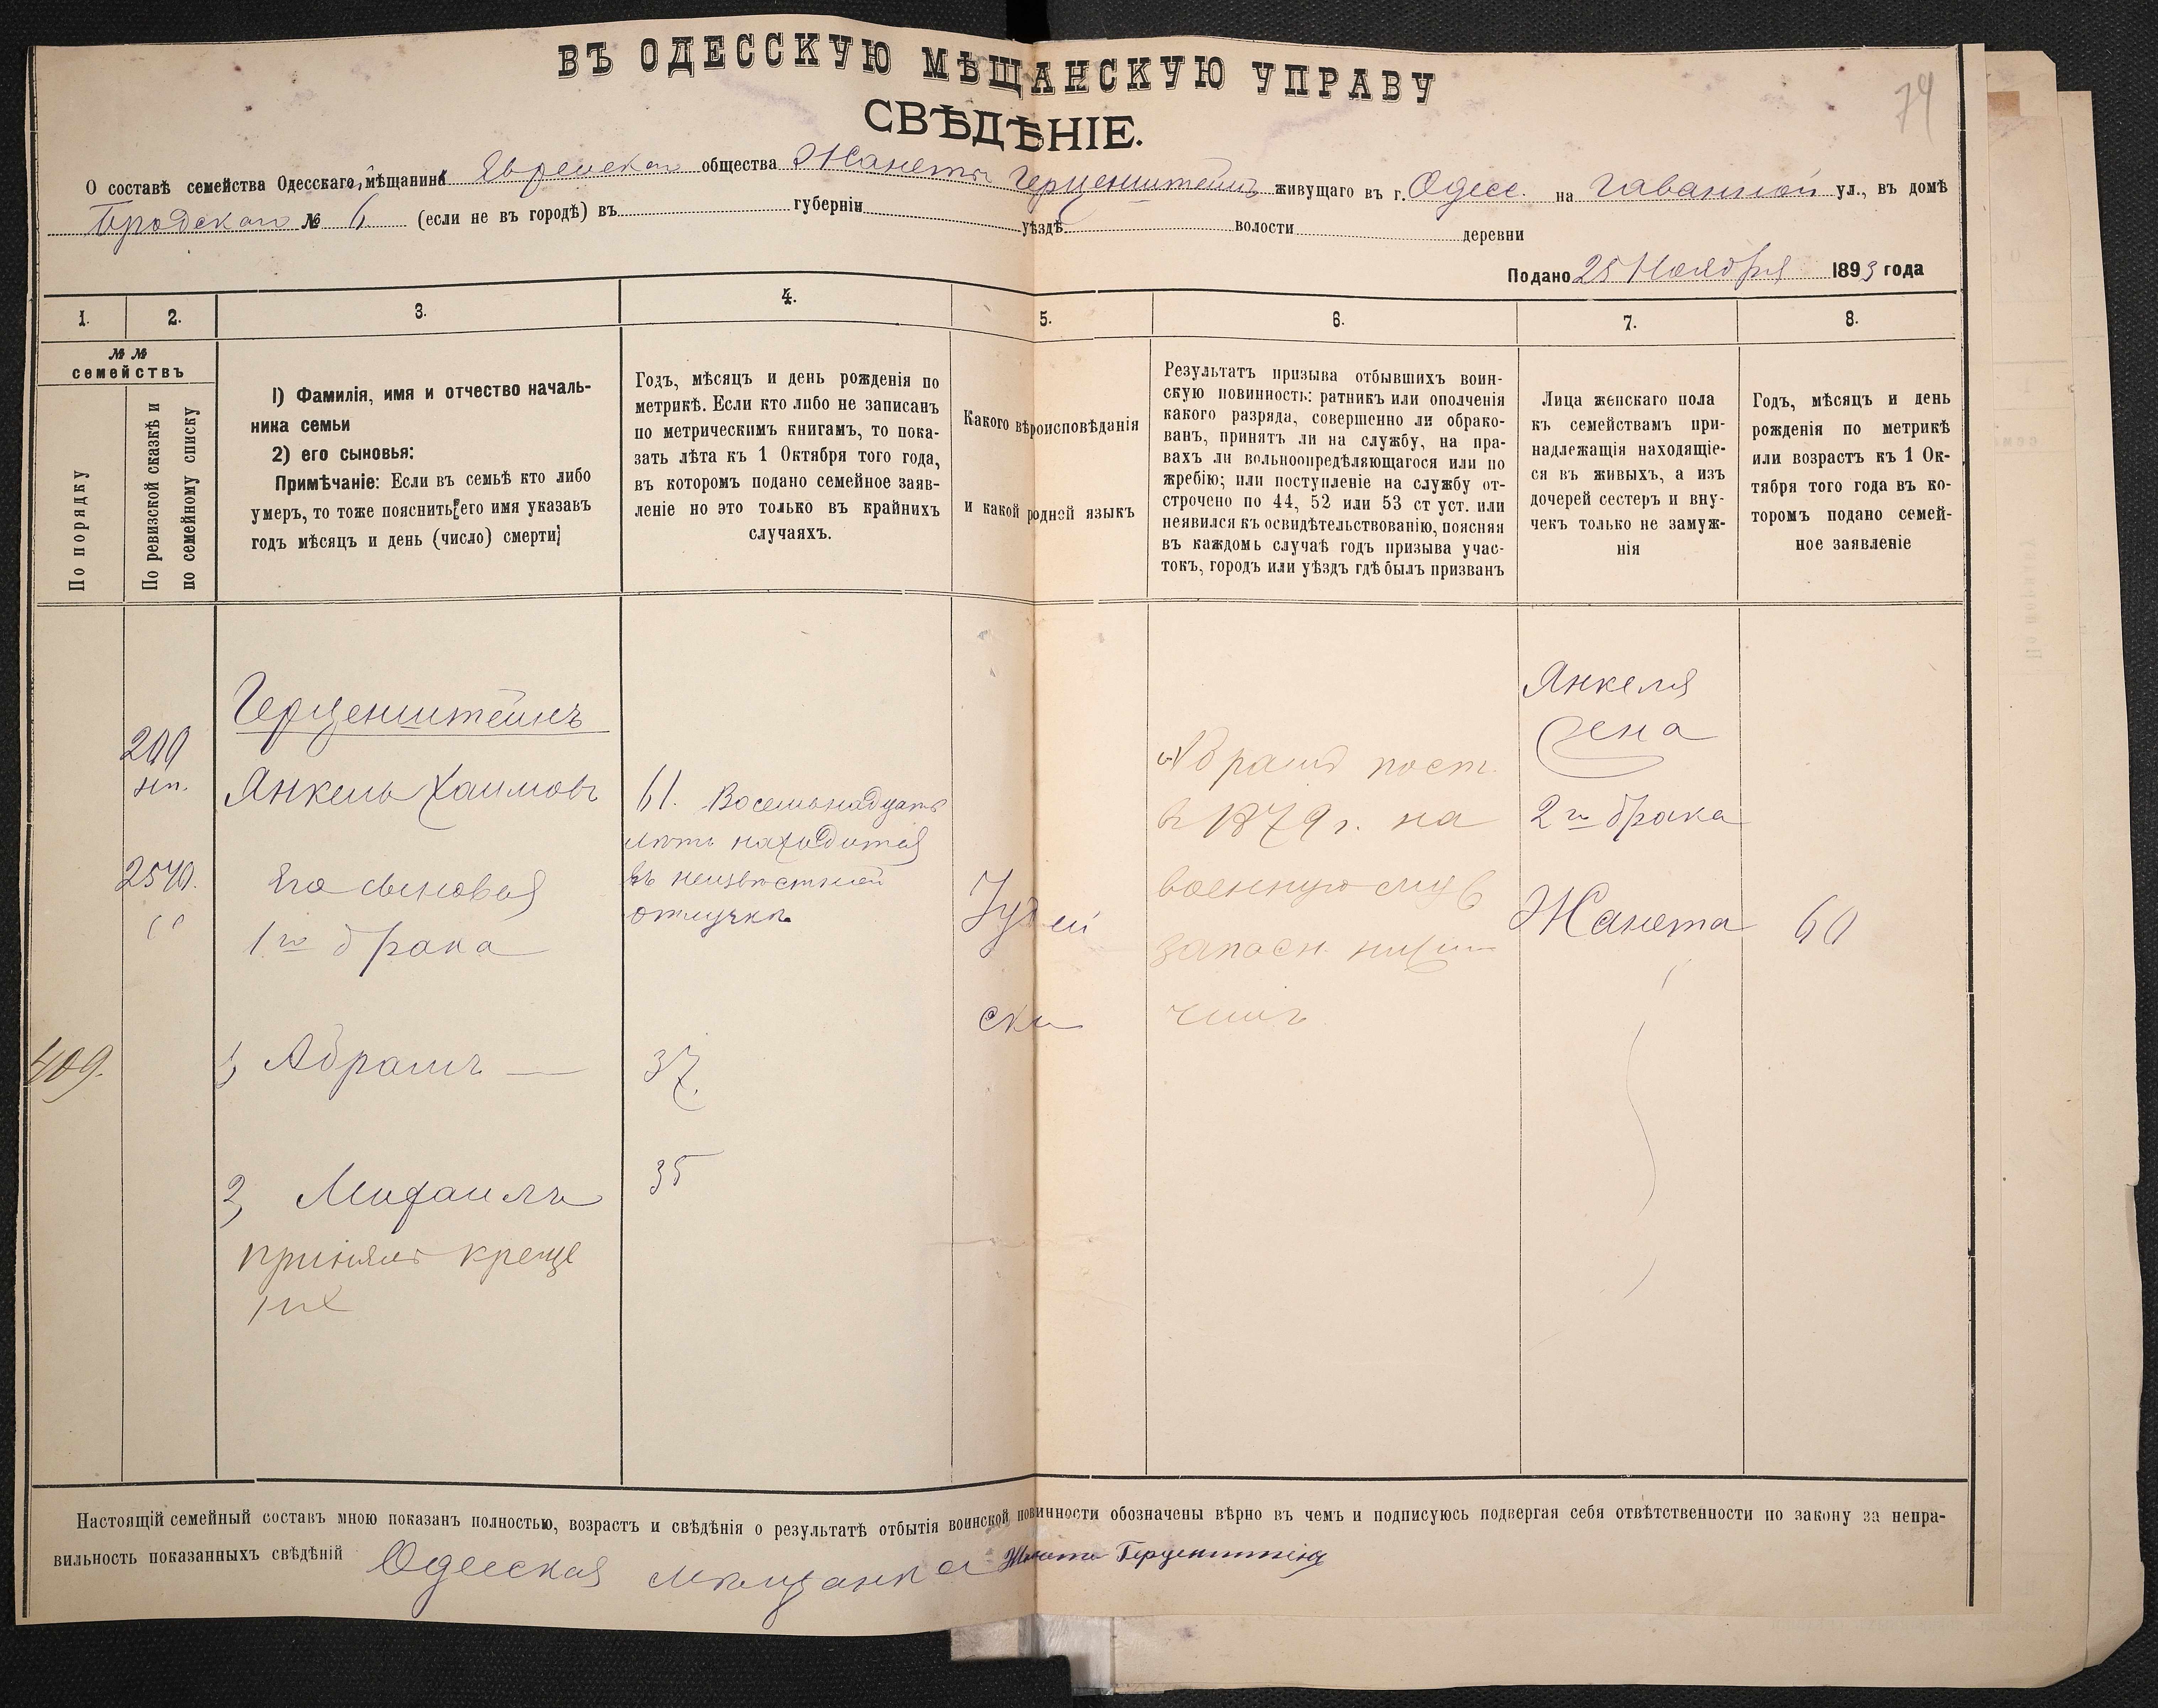 ВЪ ОДЕССКУЮ МѢЩАНСКУЮ УПРАВУ
СВѢДѢНІЕ.
74
О составѣ семейства Одесскаго мѣщанина Еврейскаго общества Жанеты Герценштейнъ живущаго въ г. Одесс. на Гаванной ул., въ домѣ
Бродскаго № 6 (если не въ городѣ) въ губерніи уѣздѣ волости деревни
Подано 25 Ноября 1893 года
1. 2. 3. 4. 5. 6. 7. 8.
№ №
семействъ
По порядку
По ревизской сказкѣ и
по семейному списку
1) Фамилія, имя и отчество началь-
ника семьи
2) его сыновья:
Примѣчаніе: Если въ семьѣ кто либо
умеръ, то тоже пояснить его имя указавъ
годъ мѣсяцъ и день (число) смерти
Годъ, мѣсяцъ и день рожденія по
метрикѣ. Если кто либо не записанъ
по метрическимъ книгамъ, то пока-
зать лѣта къ 1 Октября того года,
въ которомъ подано семейное заяв-
леніе но это только въ крайнихъ
случаяхъ.
Какого вѣроисповѣданія
и какой родной языкъ
Результатъ призыва отбывшихъ воин-
скую повинность: ратникъ или ополченія
какого разряда, совершенно ли обрако-
ванъ, принятъ ли на службу, на пра-
вахъ ли вольноопредѣляющагося или по
жребію; или поступленіе на службу от-
строчено по 44, 52 или 53 ст уст. или
неявился къ освидѣтельствованію, поясняя
въ каждомъ случаѣ годъ призыва учас-
токъ, городъ или уѣздъ гдѣ былъ призванъ
Лица женскаго пола
къ семействамъ при-
надлежащія находящіе-
ся въ живыхъ, а изъ
дочерей сестеръ и вну-
чекъ только не замуж-
нія
Годъ, мѣсяцъ и день
рожденія по метрикѣ
или возрастъ къ 1 Ок-
тября того года въ ко-
торомъ подано семей-
ное заявленіе
409.
Герценштейнъ
Янкель Хаимовъ
Его сыновья
1го брака
1) Абрамъ —
2) Михаилъ
принялъ креще
ніе
61. Восемьнадцать
лѣтъ находится
въ неизвѣстной
отлучкѣ
37.
35
Іудей
ски
Абрамъ пост.
въ 1879 г. на
военную служ
запасн. нижн
чинъ
Янкеля
жена
2го брака
Жанета
60
Настоящій семейный составъ мною показанъ полностью, возрастъ и свѣдѣнія о результатѣ отбытія воинской повинности обозначены вѣрно въ чемъ и подписуюсь подвергая себя отвѣтственности по закону за непра-
вильность показанныхъ свѣдѣній Одесская мѣщанка Жанета Герценштейнъ